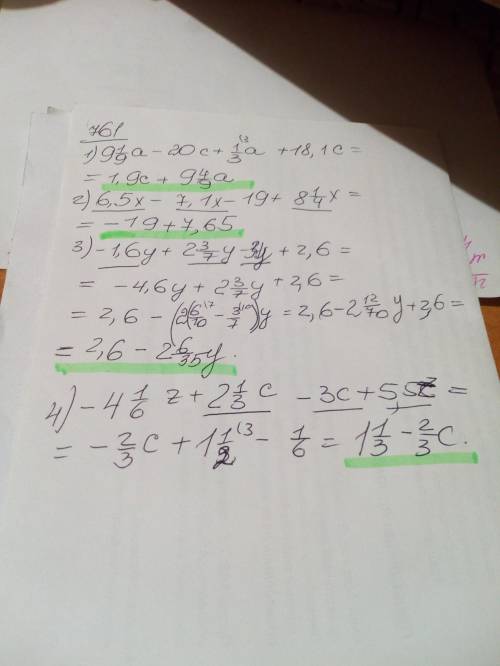 761
1) 9 1/9 a - 20c + 1/3 a + 18,1c =
= 1,9c + 9 4/9 a
2) 6,5x - 7,1x - 19 + 8 1/4 x =
= -19 + 7,65
3) -1,6y + 2 3/7 y - 3y + 2,6 =
= -4,6y + 2 3/7 y + 2,6 =
= 2,6 - (2 6/10 - 3/7)y = 2,6 - 2 12/70 y + 2,6 =
= 2,6 - 2 6/35 y.
4) -4 1/6 z + 2 1/3 c - 3c + 5,5z =
= -2/3 c + 1 1/2 - 1/6 = 1 1/3 - 2/3 c.